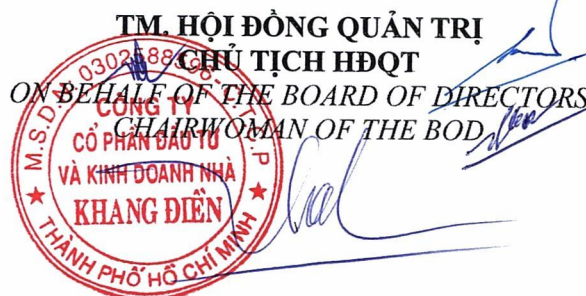 TM. HỘI ĐỒNG QUẢN TRỊ
CHỦ TỊCH HĐQT
ON BEHALF OF THE BOARD OF DIRECTORS
CHAIRWOMAN OF THE BOD
CÔNG TY
CỔ PHẦN ĐẦU TƯ
VÀ KINH DOANH NHÀ
KHANG ĐIỀN
THÀNH PHỐ HỒ CHÍ MINH